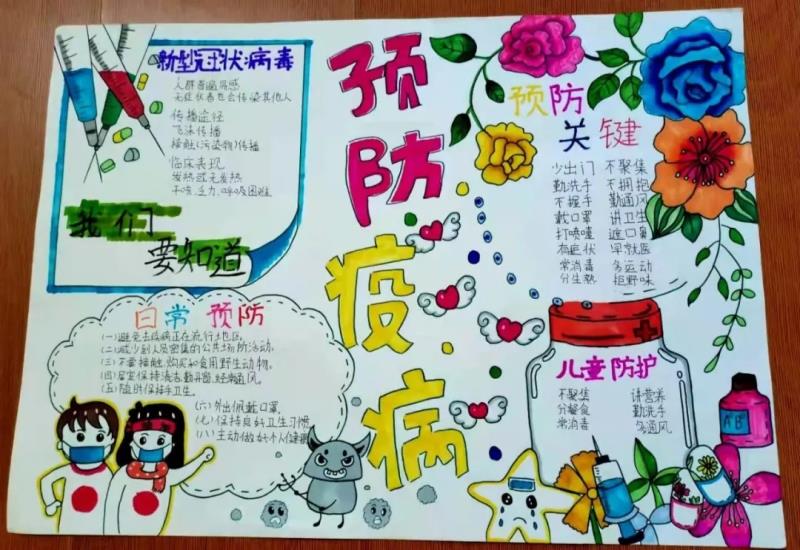 新型冠状病毒
人群普遍易感
无症状者也会传染其他人
传播途径
飞沫传播
接触(污染物)传播
临床表现
发热或无发热
干咳、乏力、呼吸困难
我们
要知道
预防疫病
预防
关键
少出门 不聚集
勤洗手 不拥抱
不握手 勤通风
戴口罩 讲卫生
打喷嚏 遮口鼻
有症状 早就医
常消毒 多运动
分生熟 拒野味
日常预防
(一)避免去疾病正在流行地区。
(二)减少到人员密集的公共场所活动。
(三)不要接触、购买和食用野生动物。
(四)居室保持清洁,勤开窗,经常通风。
(五)随时保持手卫生。
(六)外出佩戴口罩。
(七)保持良好卫生习惯
(八)主动做好个人
儿童防护
不聚集 讲营养
分餐食 勤洗手
常消毒 多通风